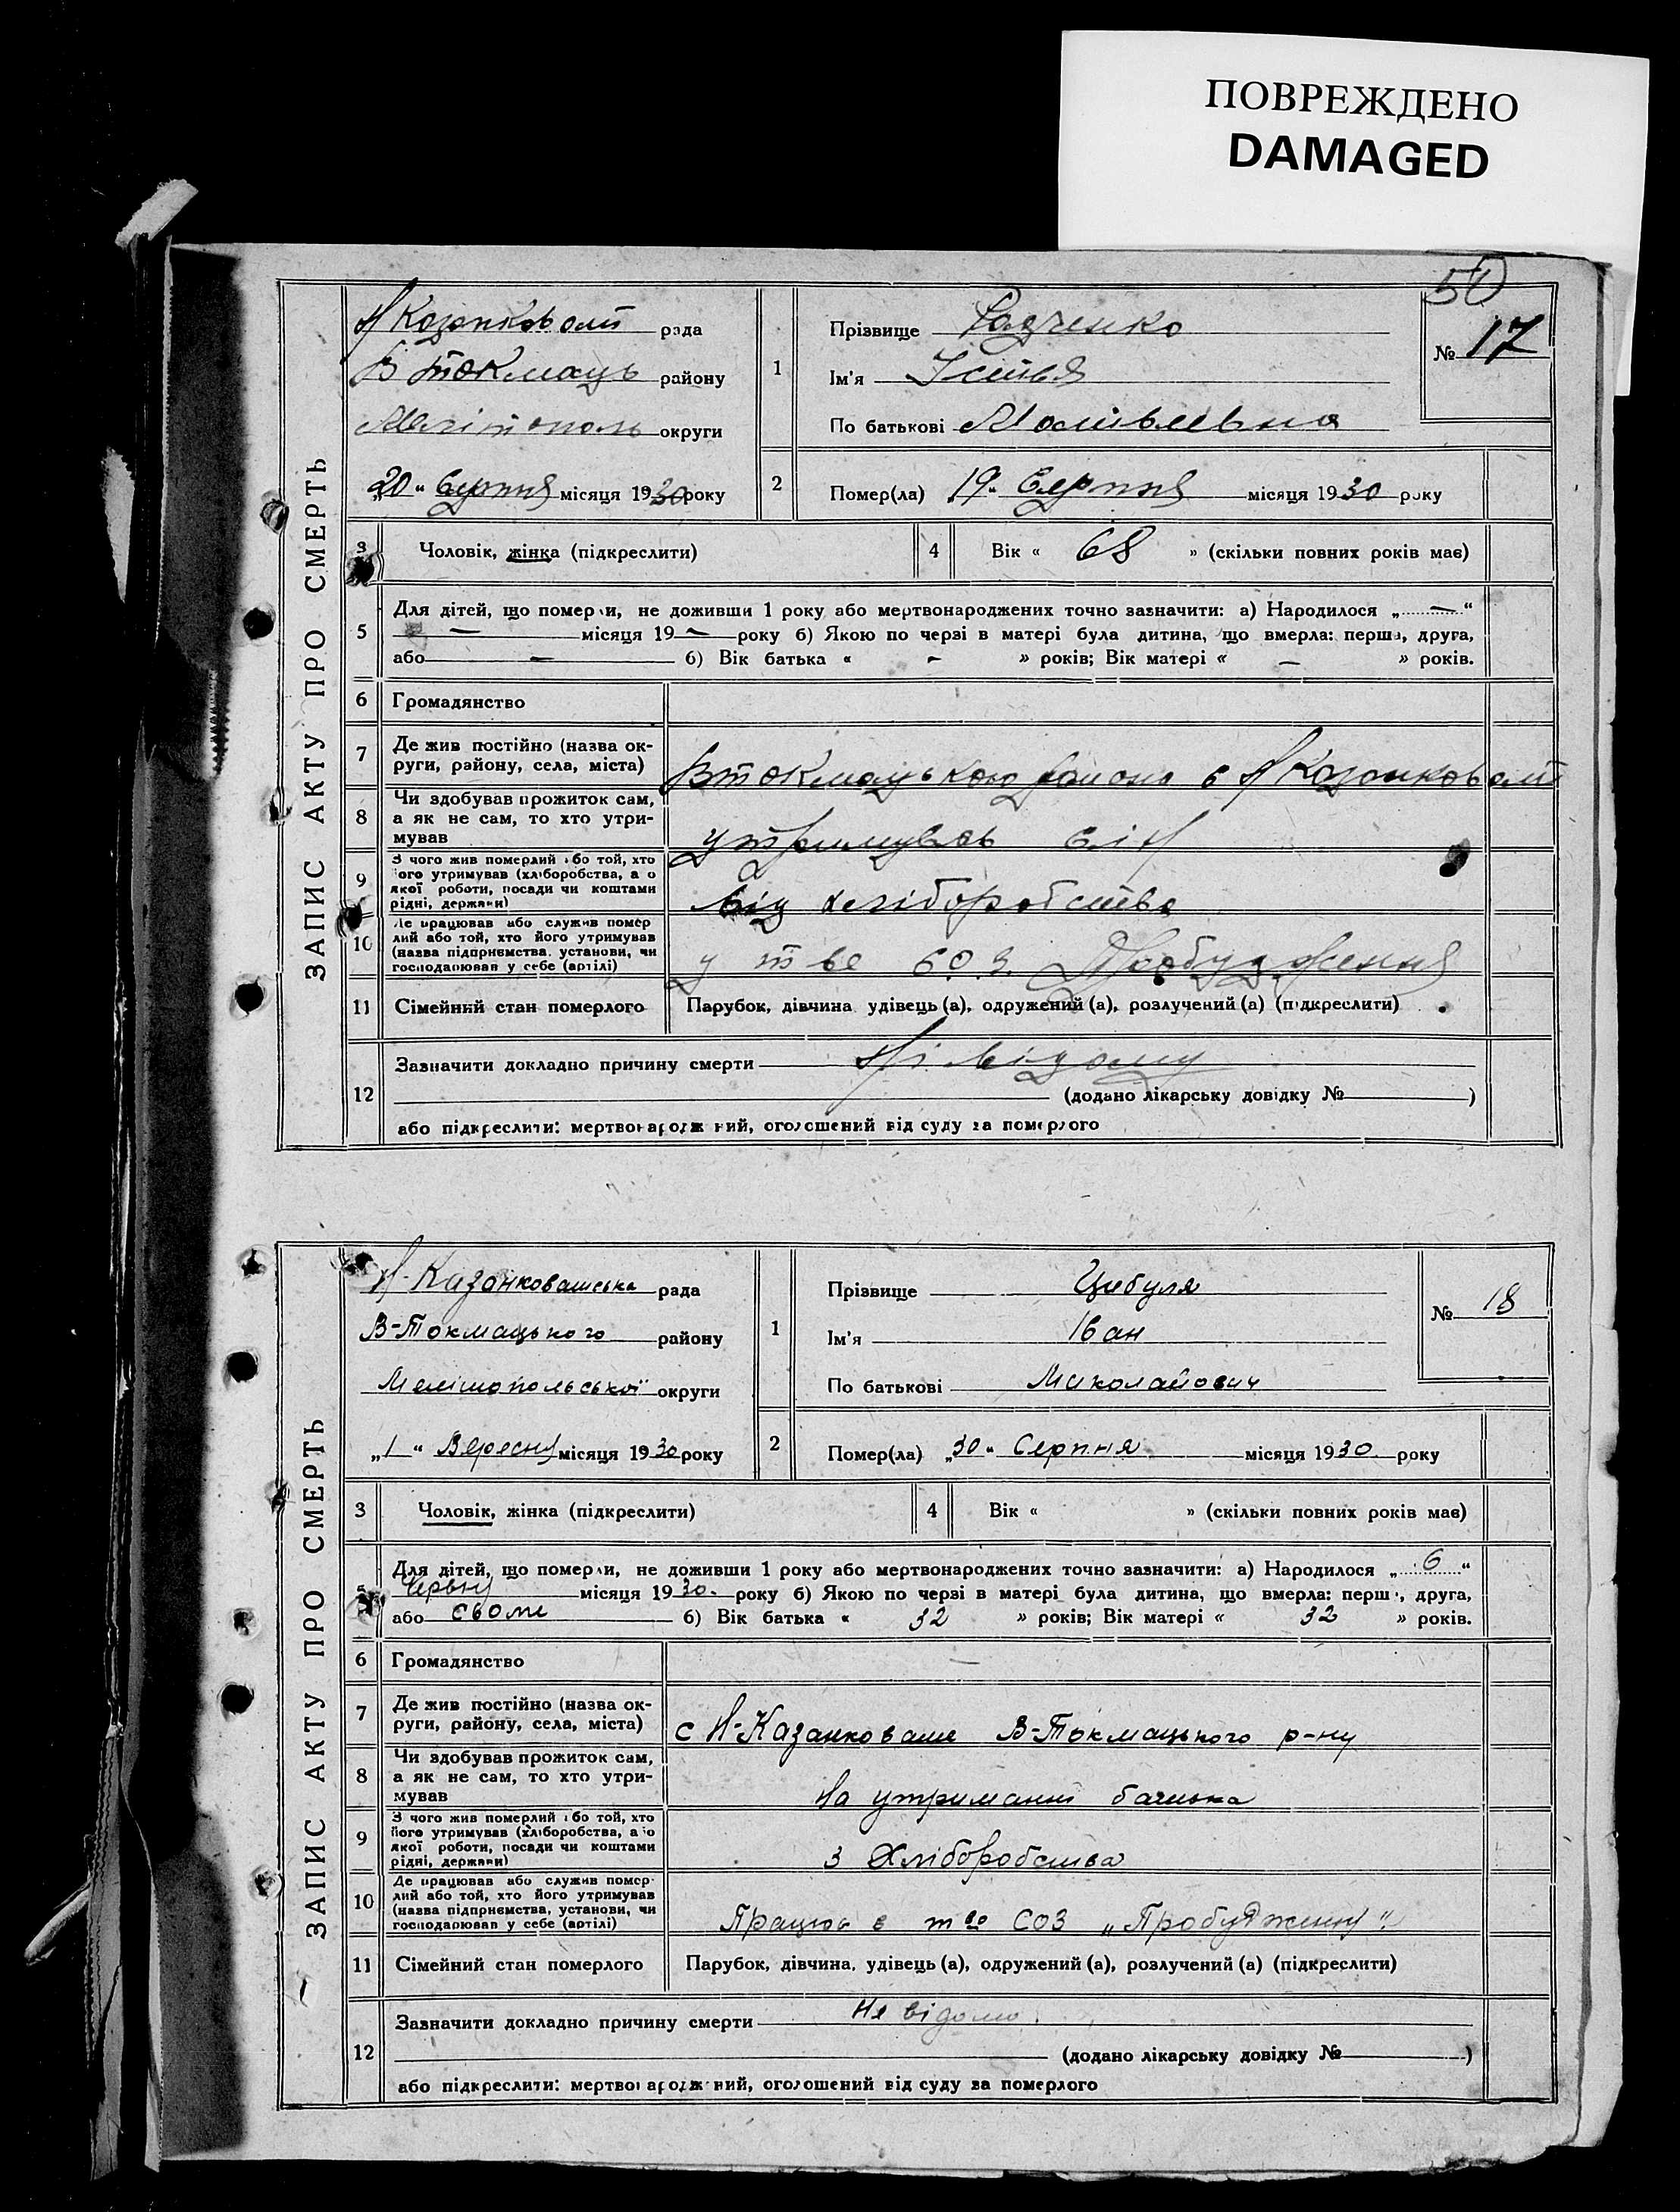 ПОВРЕЖДЕНО
DAMAGED
50
ЗАПИС АКТУ ПРО СМЕРТЬ
Н Козонковат рада
В Токмаць району
Мелітополь округи
„20“ Серпня місяця 1930 року
1
Прізвище Радченко
Ім'я Устья
По батькові Матвьевна
№ 17
2
Помер(ла) 19“ Серпня місяця 1930 року
3 Чоловік, жінка (підкреслити)
4 Вік « 68 » (скільки повних років має)
5 Для дітей, що померли, не доживши 1 року або мертвонароджених точно зазначити: а) Народилося „ — “
— місяця 19 — року б) Якою по черзі в матері була дитина, що вмерла: перша, друга,
або — б) Вік батька « - » років; Вік матері « — » років.
6 Громадянство
7 Де жив постійно (назва ок-
руги, району, села, міста)
Втокмацького района с Н Козонковат
8 Чи здобував прожиток сам,
а як не сам, то хто утри-
мував
утримував
9 З чого жив померлий або той, хто
його утримував (хліборобства, або
якої роботи, посади чи коштами
рідні, держави)
від хліборобства
10 Де працював або служив помер
лий або той, хто його утримував
(назва підприємства, установи, чи
господарював у себе (артілі)
у т ве СОЗ Пробудження
11 Сімейний стан померлого Парубок, дівчина, удівець (а), одружений (а), розлучений (а) (підкреслити)
12 Зазначити докладно причину смерти Ні відому
(додано лікарську довідку № )
або підкреслити: мертвонароджений, оголошений від суду за померлого
ЗАПИС АКТУ ПРО СМЕРТЬ
Н-Казанковатська рада
В-Токмацького району
Мелітопольської округи
„1“ Вересня місяця 1930 року
1
Прізвище Цибуля
Ім'я Іван
По батькові Миколайович
№ 18
2
Помер(ла) „30“ Серпня місяця 1930 року
3 Чоловік, жінка (підкреслити)
4 Вік « » (скільки повних років має)
5 Для дітей, що померли, не доживши 1 року або мертвонароджених точно зазначити: а) Народилося „ 6 “
Червня місяця 1930. року б) Якою по черзі в матері була дитина, що вмерла: перша, друга,
або сьоме б) Вік батька « 32 » років; Вік матері « 32 » років.
6 Громадянство —
7 Де жив постійно (назва ок-
руги, району, села, міста)
с Н-Казанковате В-Токмацького р-ну
8 Чи здобував прожиток сам,
а як не сам, то хто утри-
мував
На утриманні батька
9 З чого жив померлий або той, хто
його утримував (хліборобства, або
якої роботи, посади чи коштами
рідні, держави)
з Хліборобства
10 Де працював або служив помер
лий або той, хто його утримував
(назва підприємства, установи, чи
господарював у себе (артілі)
Працює в т во СОЗ „Пробудження“.
11 Сімейний стан померлого Парубок, дівчина, удівець (а), одружений (а), розлучений (а) (підкреслити)
12 Зазначити докладно причину смерти Не відомо.
(додано лікарську довідку № )
або підкреслити: мертвонароджений, оголошений від суду за померлого